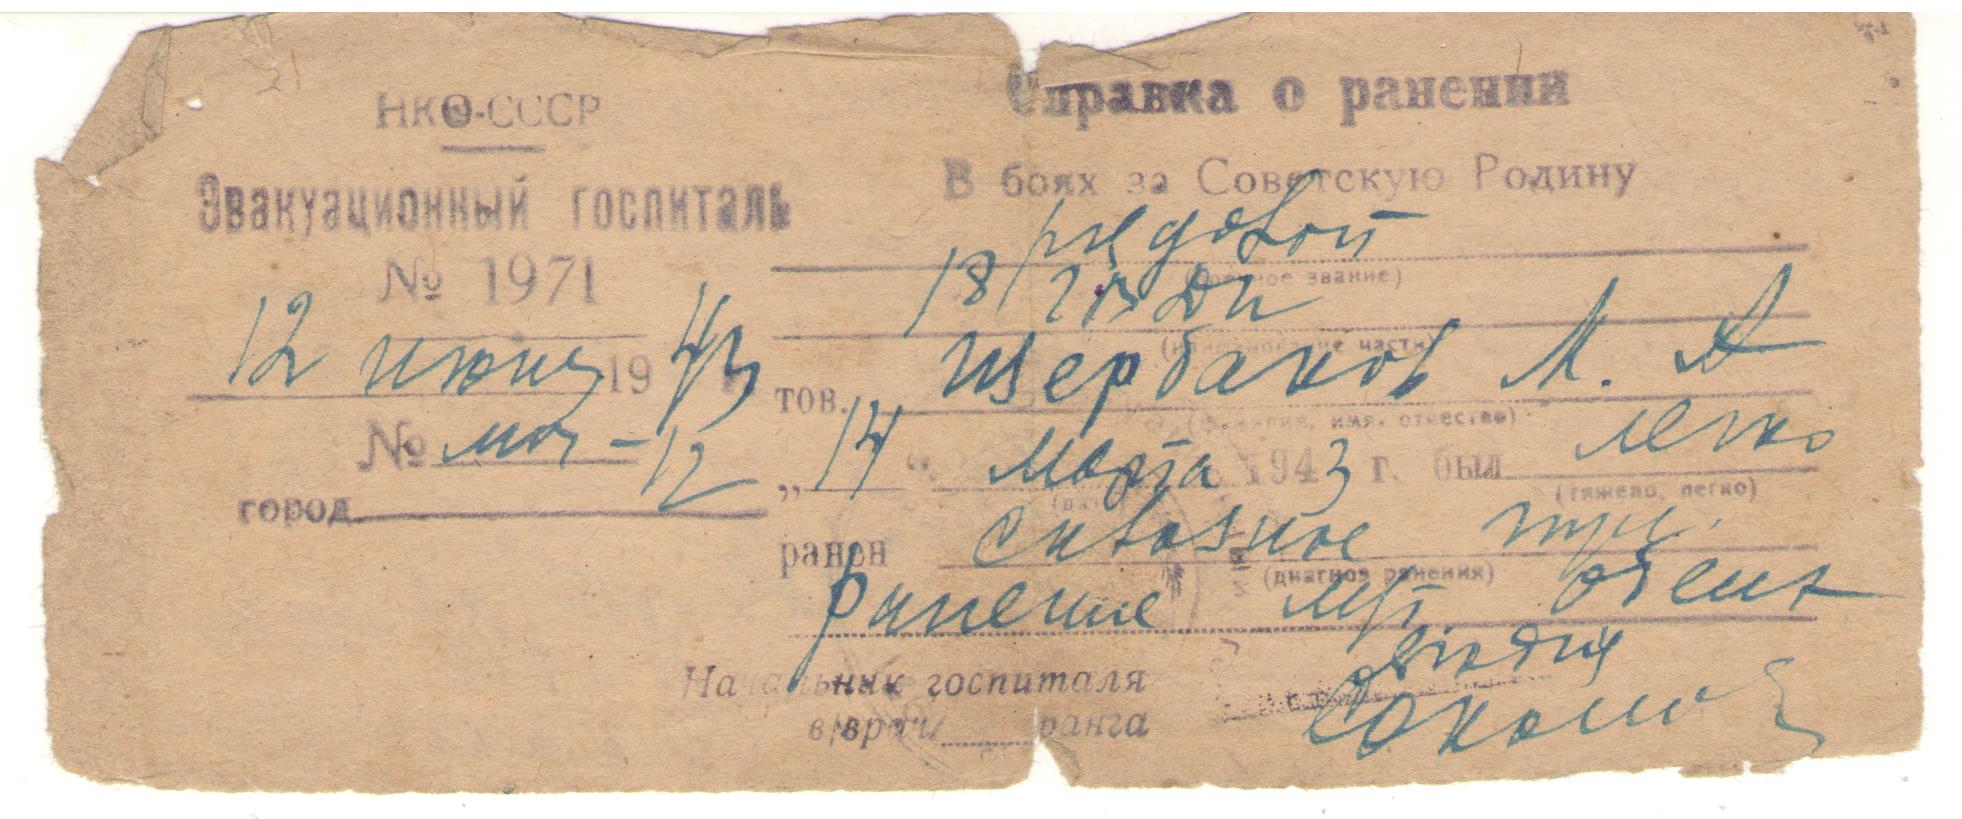 НКО-СССР
Эвакуационный госпиталь
№ 1971
12 июня 1943
№ 12
город
Справка о ранении
В боях за Советскую Родину
рядовой
(военное звание)
18
(наименование части)
тов. Щербаков М. А
(фамилия, имя, отчество)
„14 “ марта 1943 г. был легко
(дата) (тяжело, легко)
ранен сквозное
(диагноз ранения)
ранение
Начальник госпиталя
в/врач ранга